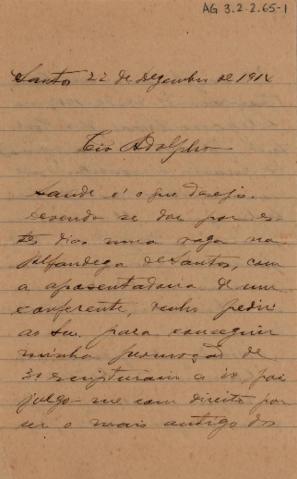 AG 3.2-2.65-1
Santos 22 de dezembro de 1914
Tio Adolpho
Saude é o que desejo.
Devendo se dar por es
tes dias uma vaga na
Alfandega de Santos, com
a aposentadoria de um
conferente, venho pedir
ao Snr. para conseguir
minha promoção de
3º escripturario a 2º, pois
julgo-me com direito por
ser o mais antigo dos